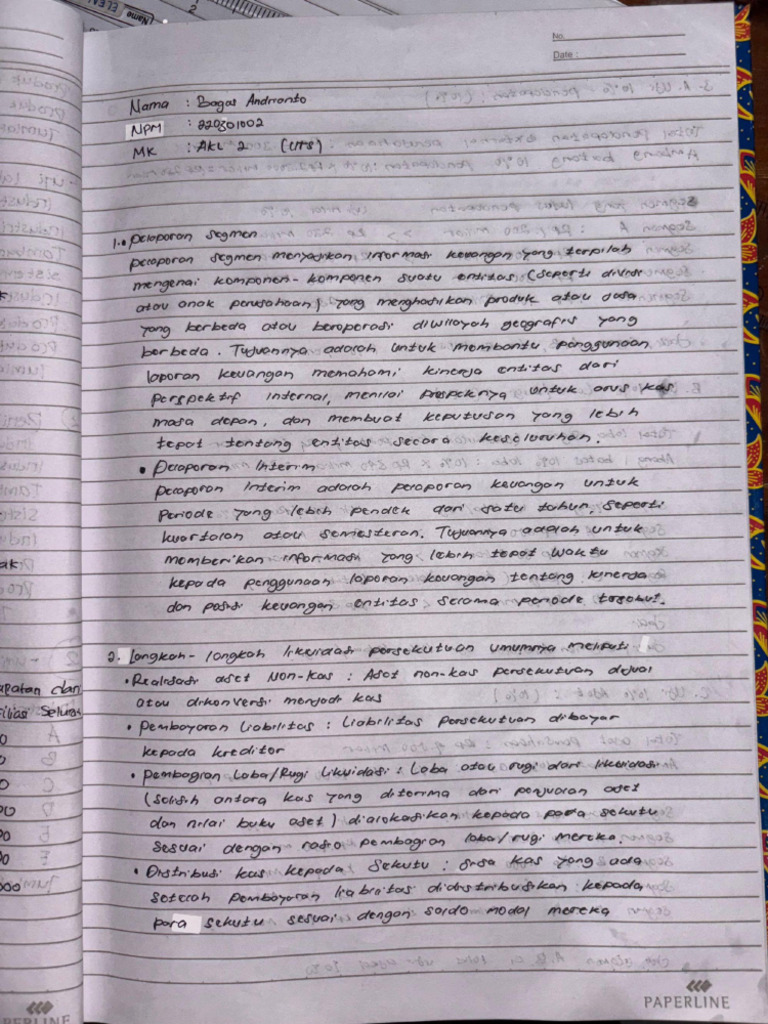 No.
Date :
Nama : Bagas Andrianto
NPM : 220301002
MK : AKL 2 (UTS)
1. • Pelaporan Segmen
Pelaporan segmen menyajikan informasi keuangan yang terpilah
mengenai komponen-komponen suatu entitas (seperti divisi
atau anak perusahaan) yang menghasilkan produk atau jasa
yang berbeda atau beroperasi diwilayah geografis yang
berbeda. Tujuannya adalah untuk membantu penggunaan
laporan keuangan memahami kinerja entitas dari
perspektif internal, menilai prospeknya untuk arus kas
masa depan, dan membuat keputusan yang lebih
tepat tentang entitas secara keseluruhan.
• Pelaporan Interim
Pelaporan Interim adalah pelaporan keuangan untuk
periode yang lebih pendek dari satu tahun, seperti
kuartalan atau semesteran. Tujuannya adalah untuk
memberikan informasi yang lebih tepat waktu
kepada penggunaan laporan keuangan tentang kinerja
dan posisi keuangan entitas selama periode tersebut.
2. Langkah-langkah likuidasi persekutuan umumnya meliputi
• Realisasi aset Non-kas : Aset non-kas persekutuan dijual
atau dikonversi menjadi kas
• Pembayaran Liabilitas : Liabilitas persekutuan dibayar
kepada kreditor
• Pembagian Laba/Rugi Likuidasi : Laba atau rugi dari likuidasi
(selisih antara kas yang diterima dari penjualan aset
dan nilai buku aset) dialokasikan kepada para sekutu
sesuai dengan rasio pembagian laba/rugi mereka.
• Distribusi kas kepada Sekutu : Sisa kas yang ada
setelah pembayaran liabilitas didistribusikan kepada
para sekutu sesuai dengan saldo modal mereka
PAPERLINE